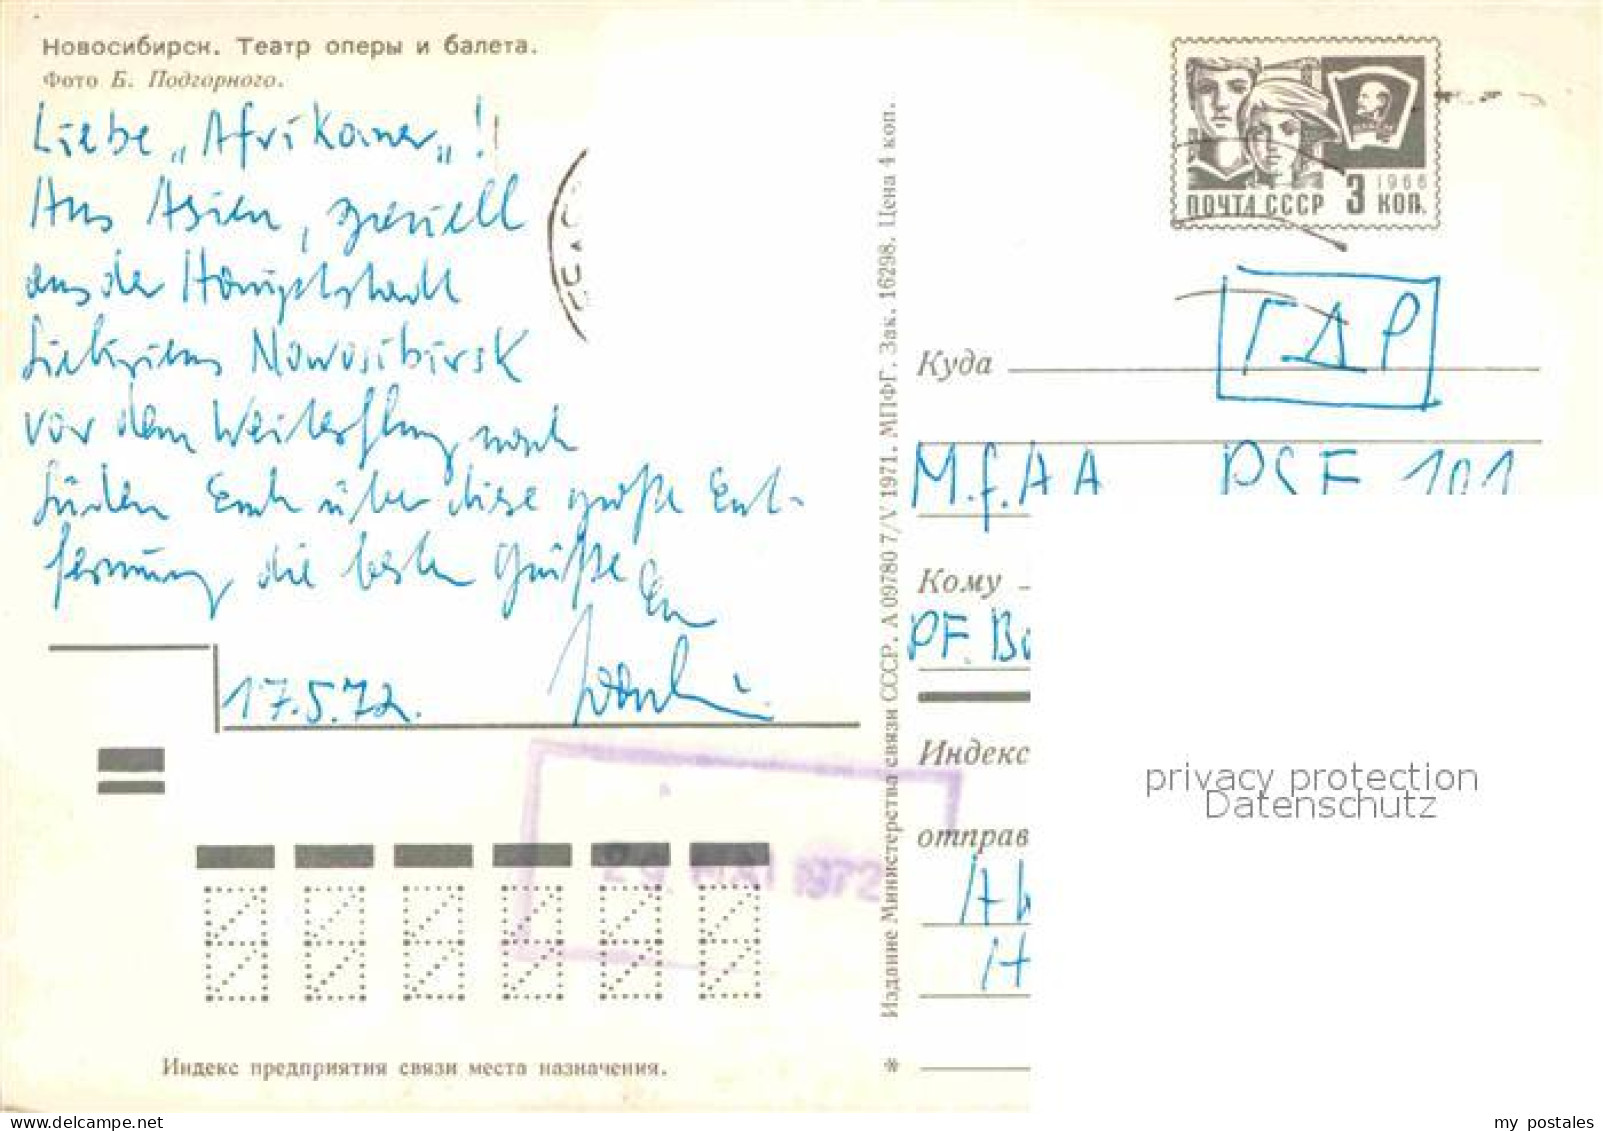 Новосибирск. Театр оперы и балета.
Фото Б. Подгорного.
Liebe „Afrikaner„!
Aus Asien, speziell
aus der Hauptstadt
Sibiriens Nowosibirsk
vor dem Weiterflug nach
Süden Euch über diese große Ent-
fernung die besten Grüße
17.5.72.
29. MAI 1972
Индекс предприятия связи места назначения.
Издание Министерства связи СССР. А 09780 7/V 1971. МПФГ. Зак. 16298. Цена 4 коп.
*
1966
ПОЧТА СССР 3 КОП.
ГДР
Куда
M.f.AA PSF 101
Кому
PF. B
Индекс
отправ
privacy protection
Datenschutz
my postales